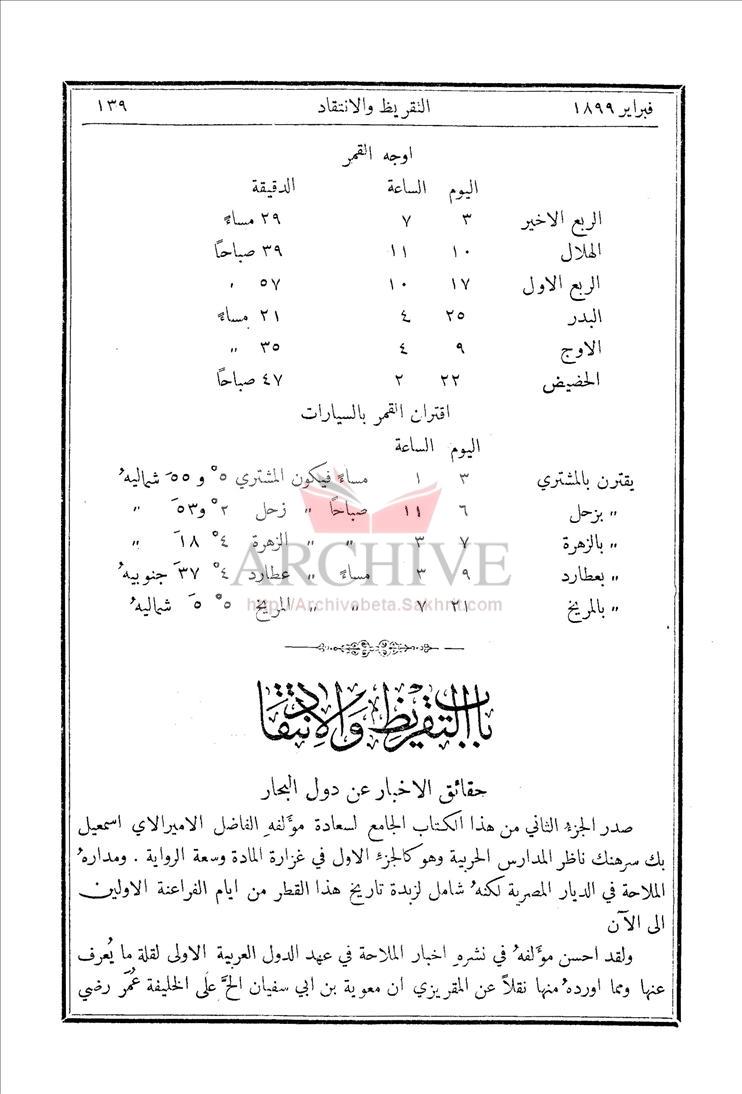 فبراير ١٨٩٩ التقريظ والانتقاد ١٣٩
اوجه القمر
اليوم الساعة الدقيقة
الربع الاخير ٣ ٧ ٢٩ مساءً
الهلال ١٠ ١١ ٣٩ صباحًا
الربع الاول ١٧ ١٠ ٥٧ ‚
البدر ٢٥ ٤ ٢١ مساءً
الاوج ٩ ٤ ٣٥ „
الحضيض ٢٢ ٢ ٤٧ صباحًا
اقتران القمر بالسيارات
اليوم الساعة
يقترن بالمشتري ٣ ١ مساءً فيكون المشتري ٥° و ٥٥َ شماليهُ
„ بزحل ٦ ١١ صباحًا „ زحل ٢° و٥٣َ „
„ بالزهرة ٧ ٣ „ „ الزهرة ٤° ١٨َ „
„ بعطارد ٩ ٣ مساءً „ عطارد ٤° ٣٧َ جنوبيهُ
„ بالمريخ ٢١ ٧ „ „ المريخ ٥° ٥َ شماليهُ
ARCHIVE
http://Archivebeta.Sakhrit.com
باب التقريظ والانتقاد
حقائق الاخبار عن دول البحار
صدر الجزء الثاني من هذا الكتاب الجامع لسعادة مؤلفهِ الفاضل الاميرالاي اسمعيل
بك سرهنك ناظر المدارس الحربية وهو كالجزء الاول في غزارة المادة وسعة الرواية . ومدارهُ
الملاحة في الديار المصرية لكنهُ شامل لزبدة تاريخ هذا القطر من ايام الفراعنة الاولين
الى الآن
ولقد احسن مؤلفهُ في نشرهِ اخبار الملاحة في عهد الدول العربية الاولى لقلة ما يُعرف
عنها ومما اوردهُ منها نقلاً عن المقريزي ان معوية بن ابي سفيان الحَّ علَى الخليفة عُمَر رضي